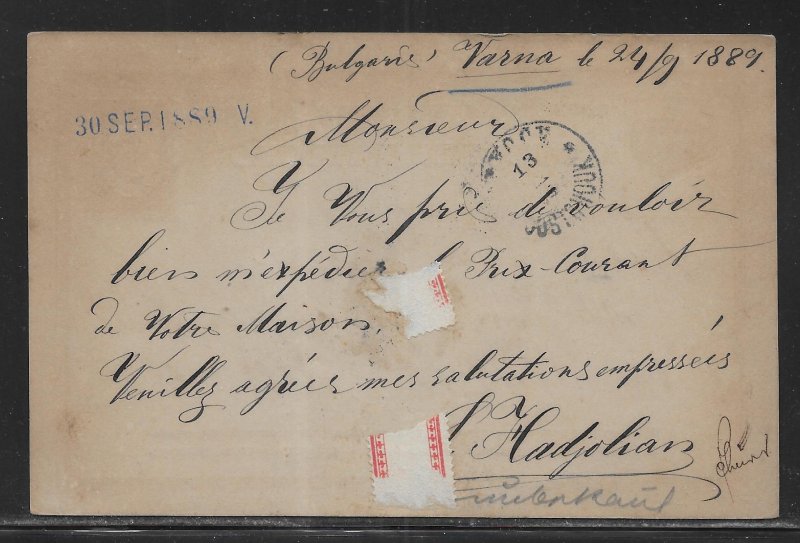 (Bulgarie) Varna le 24/9 1889.
30 SEP. 1889 V.
Monsieur
13
Je Vous prie de vouloir
bien m'expédier le Prix-Courant
de Votre Maison.
Veuillez agréer mes salutations empressées
Hadjolian